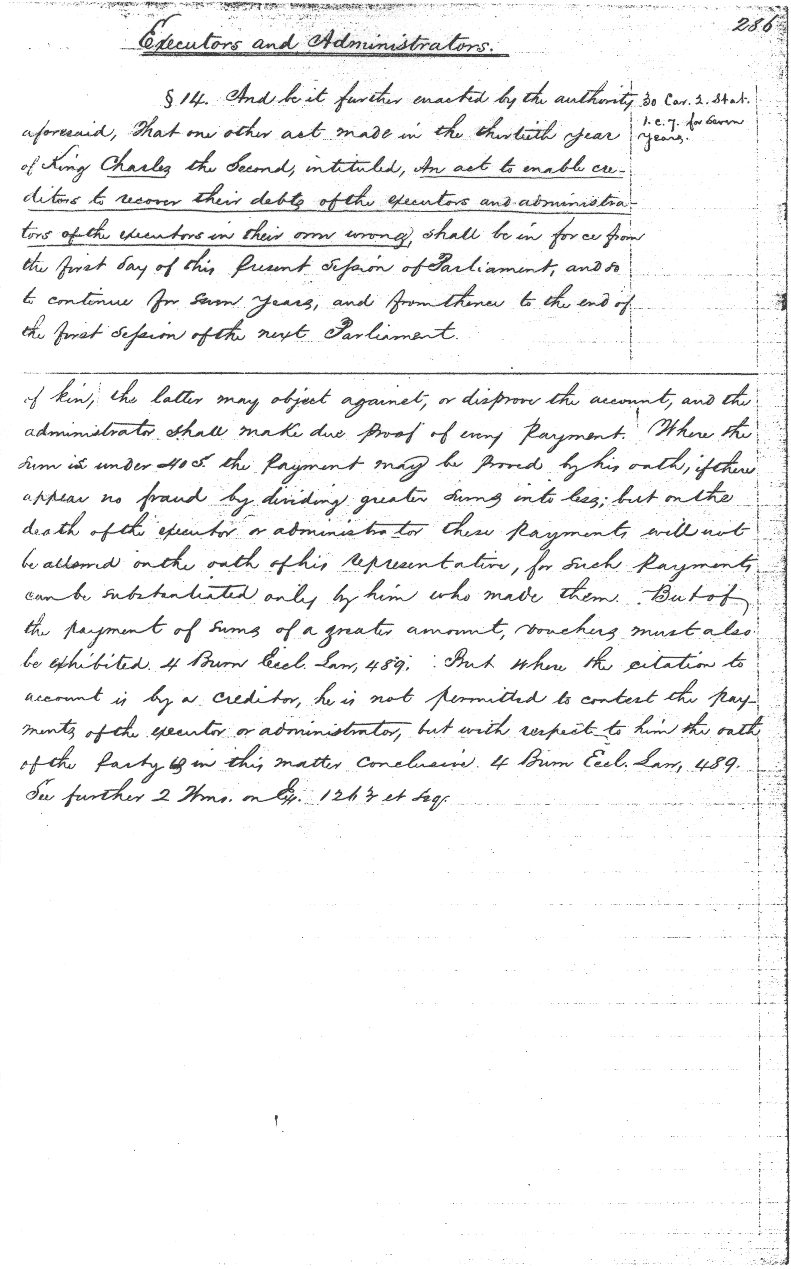 286
Executors and Administrators.
§ 14. And be it further enacted by the authority
aforesaid, That one other act made in the thirtieth year
of King Charles the Second, intituled, An act to enable cre-
ditors to recover their debts of the executors and administra-
tors of the executors in their own wrong, shall be in force from
the first day of this present Session of Parliament, and so
to continue for seven years, and from thence to the end of
the first Session of the next Parliament.
30 Car. 2. Stat.
1. c. 7. for seven
years.
of kin, the latter may object against, or disprove the account, and the
administrator shall make due proof of every payment. Where the
sum is under 40 s. the payment may be proved by his oath, if there
appear no fraud by dividing greater sums into less; but on the
death of the executor or administrator these payments will not
be allowed on the oath of his representative, for such payments
can be substantiated only by him who made them. But of
the payment of sums of a greater amount, vouchers must also
be exhibited. 4 Burn Eccl. Law, 489. But where the citation to
account is by a creditor, he is not permitted to contest the pay-
ments of the executor or administrator, but with respect to him the oath
of the party is in this matter conclusive. 4 Burn Eccl. Law, 489.
See further 2 Wms. on Ex. et seq.